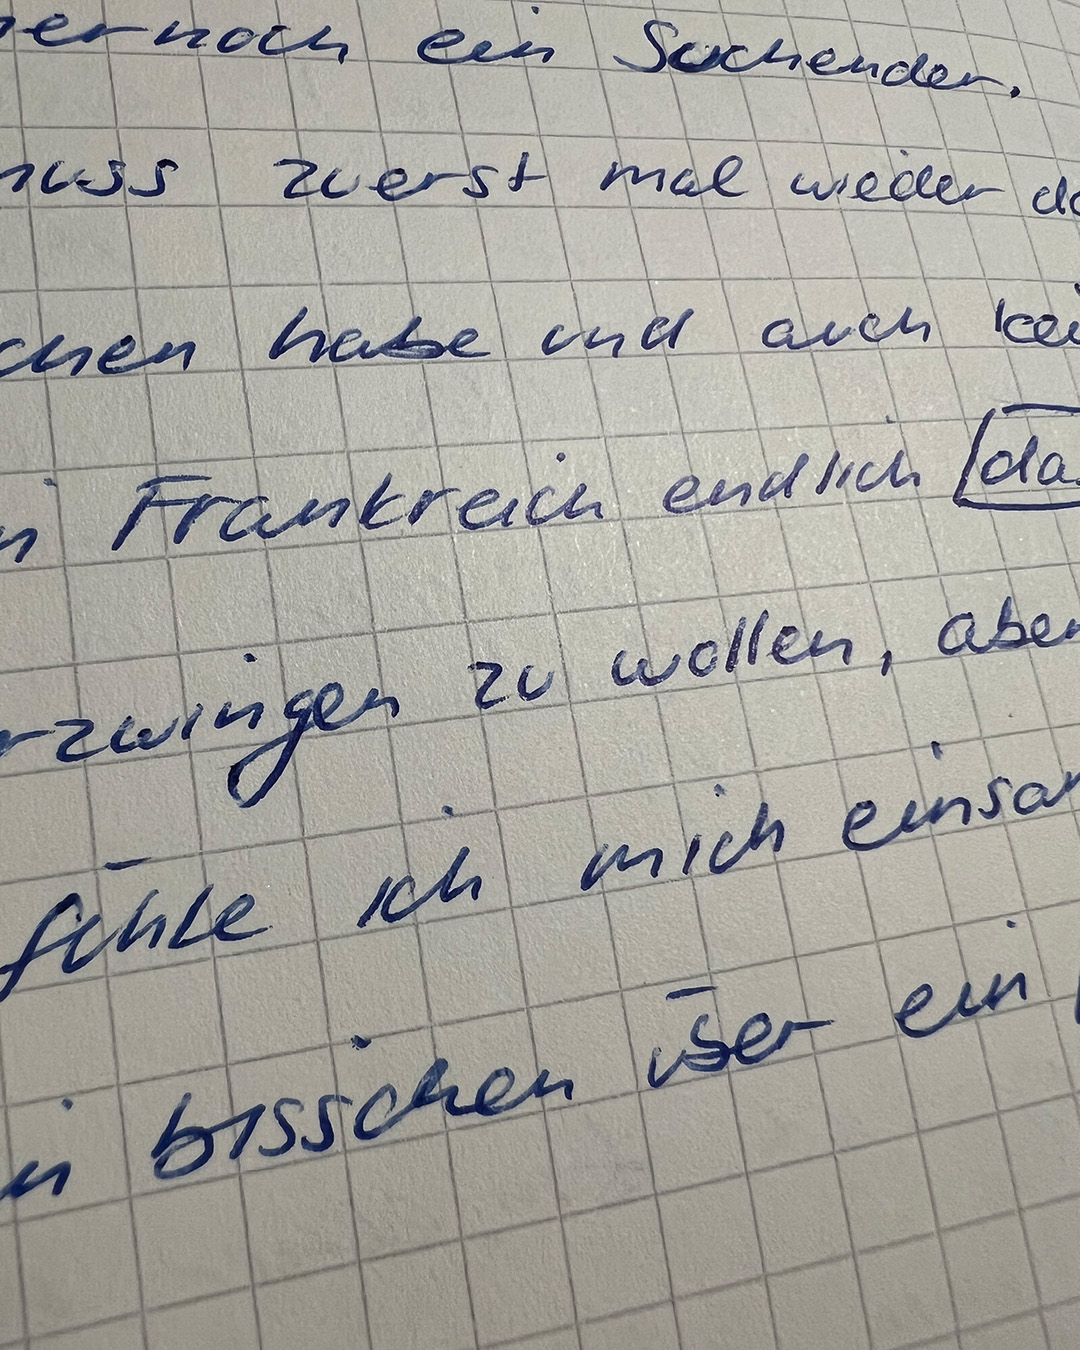 ernoch ein Suchender.
muss zuerst mal wieder da
chen habe und auch kei
n Frankreich endlich da
rzwingen zu wollen, aber
fühle ich mich einsam
n bisschen über ein